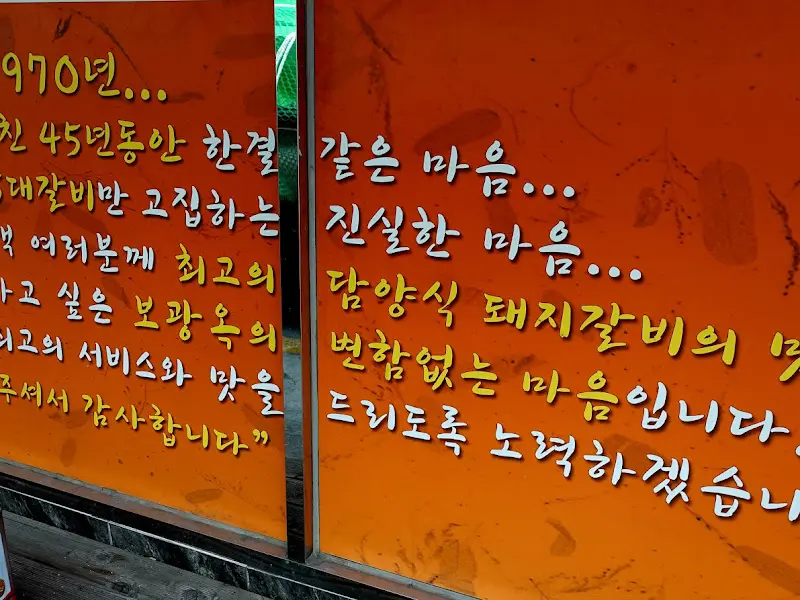 970년...
45년동안 한결 같은 마음...
대갈비만 고집하는 진실한 마음...
여러분께 최고의 담양식 돼지갈비의
싶은 보광옥의 변함없는 마음입니다.
최고의 서비스와 맛을 드리도록 노력하겠습니
주셔서 감사합니다”